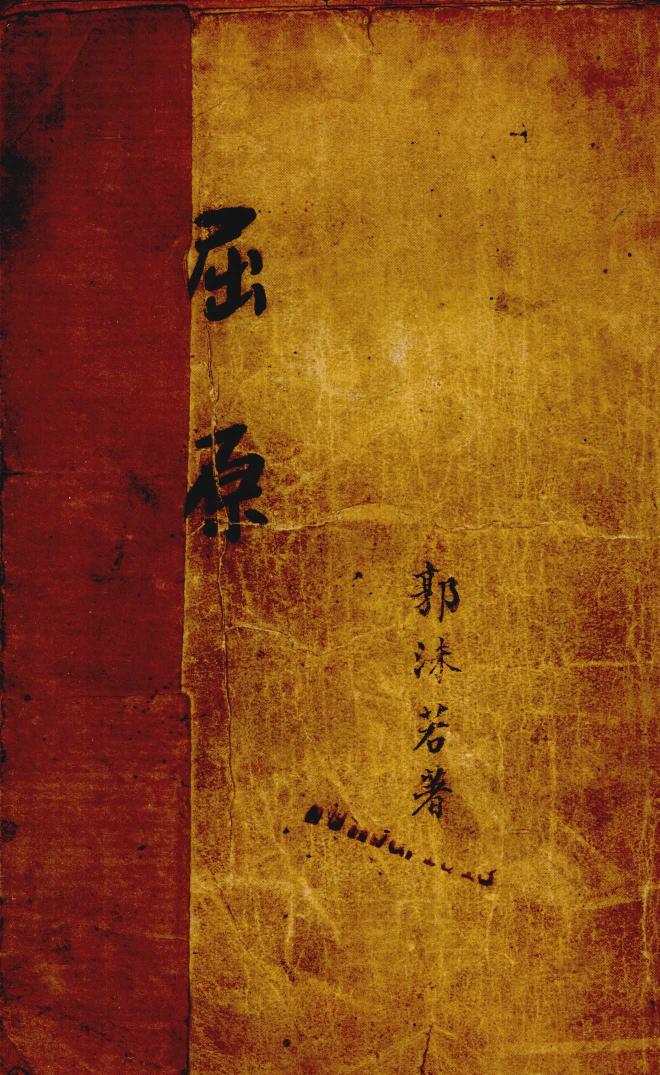 屈原
郭沫若著